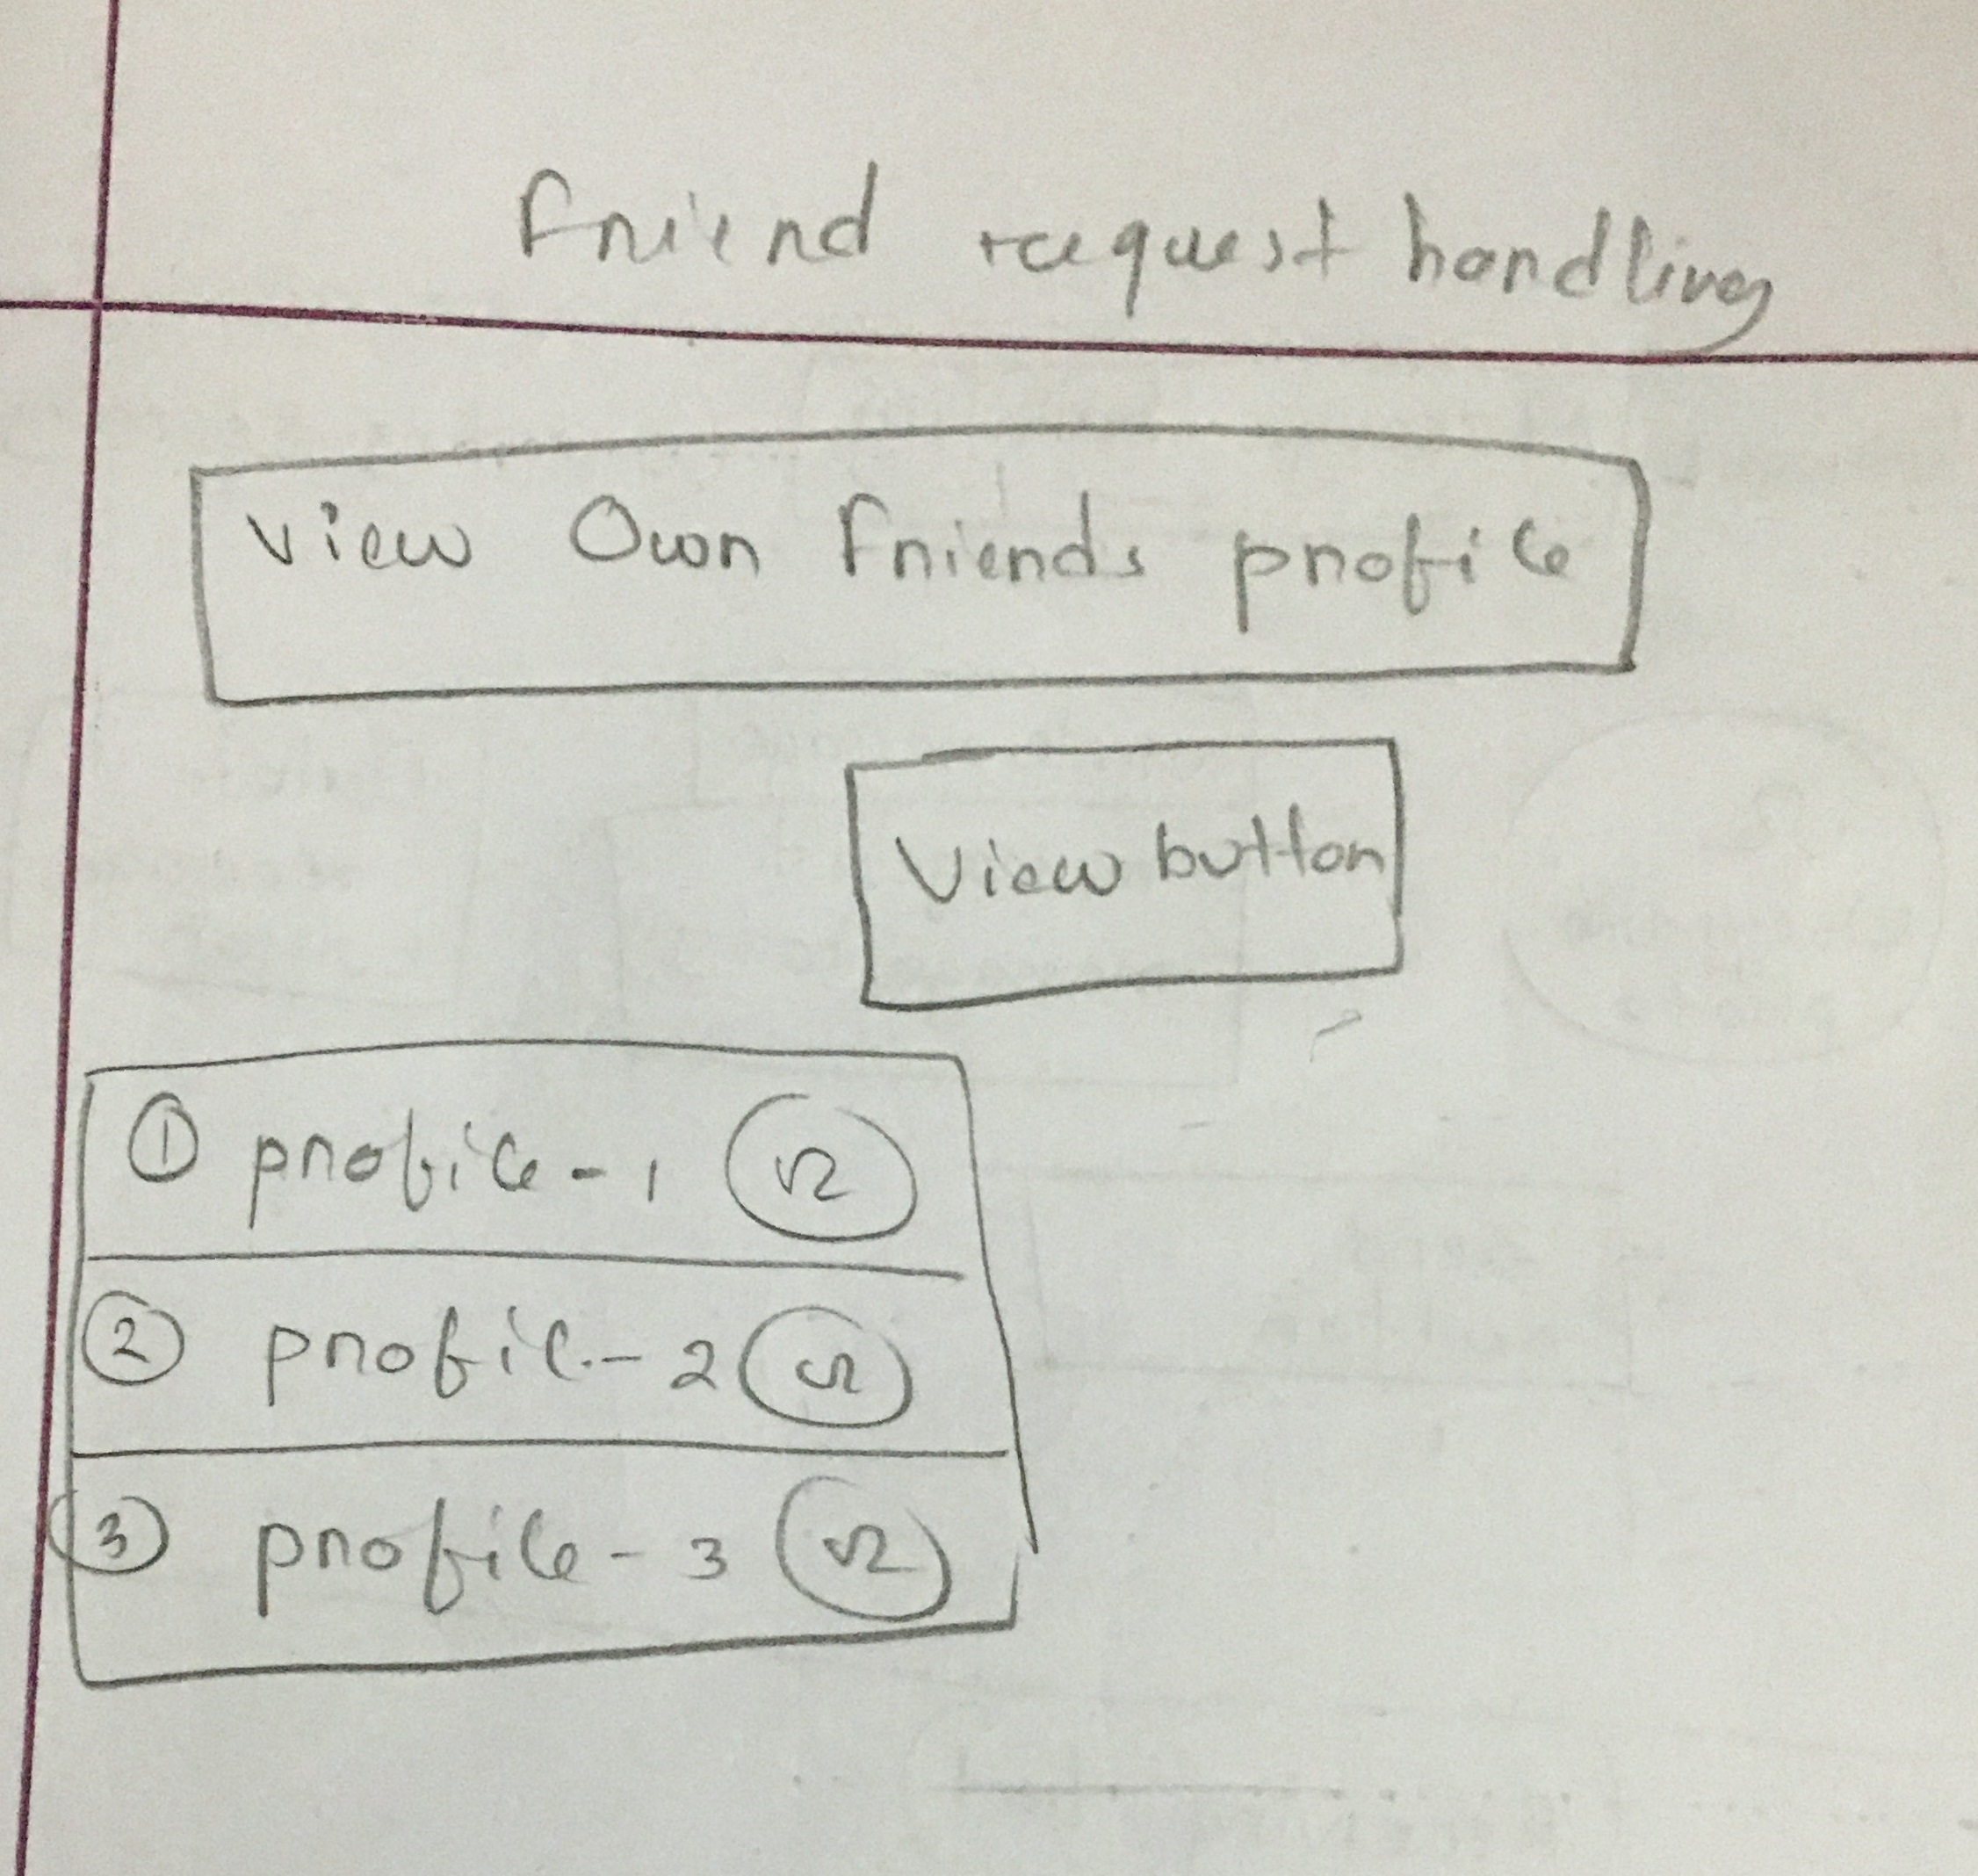 Friend request handling
View Own Friends profile
View button
① profile - 1
② profile - 2
③ profile - 3